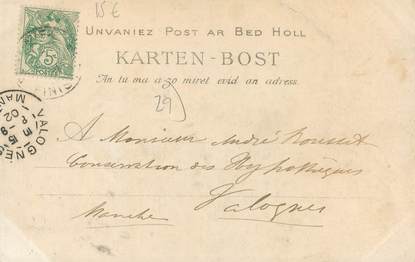 15 €
UNVANIEZ POST AR BED HOLL
KARTEN-BOST
An tu ma a zo miret evid an adress.
29
5
VALOGNES
A Monsieur André Rousset
Conservation des Hypothèques
Valognes
Manche